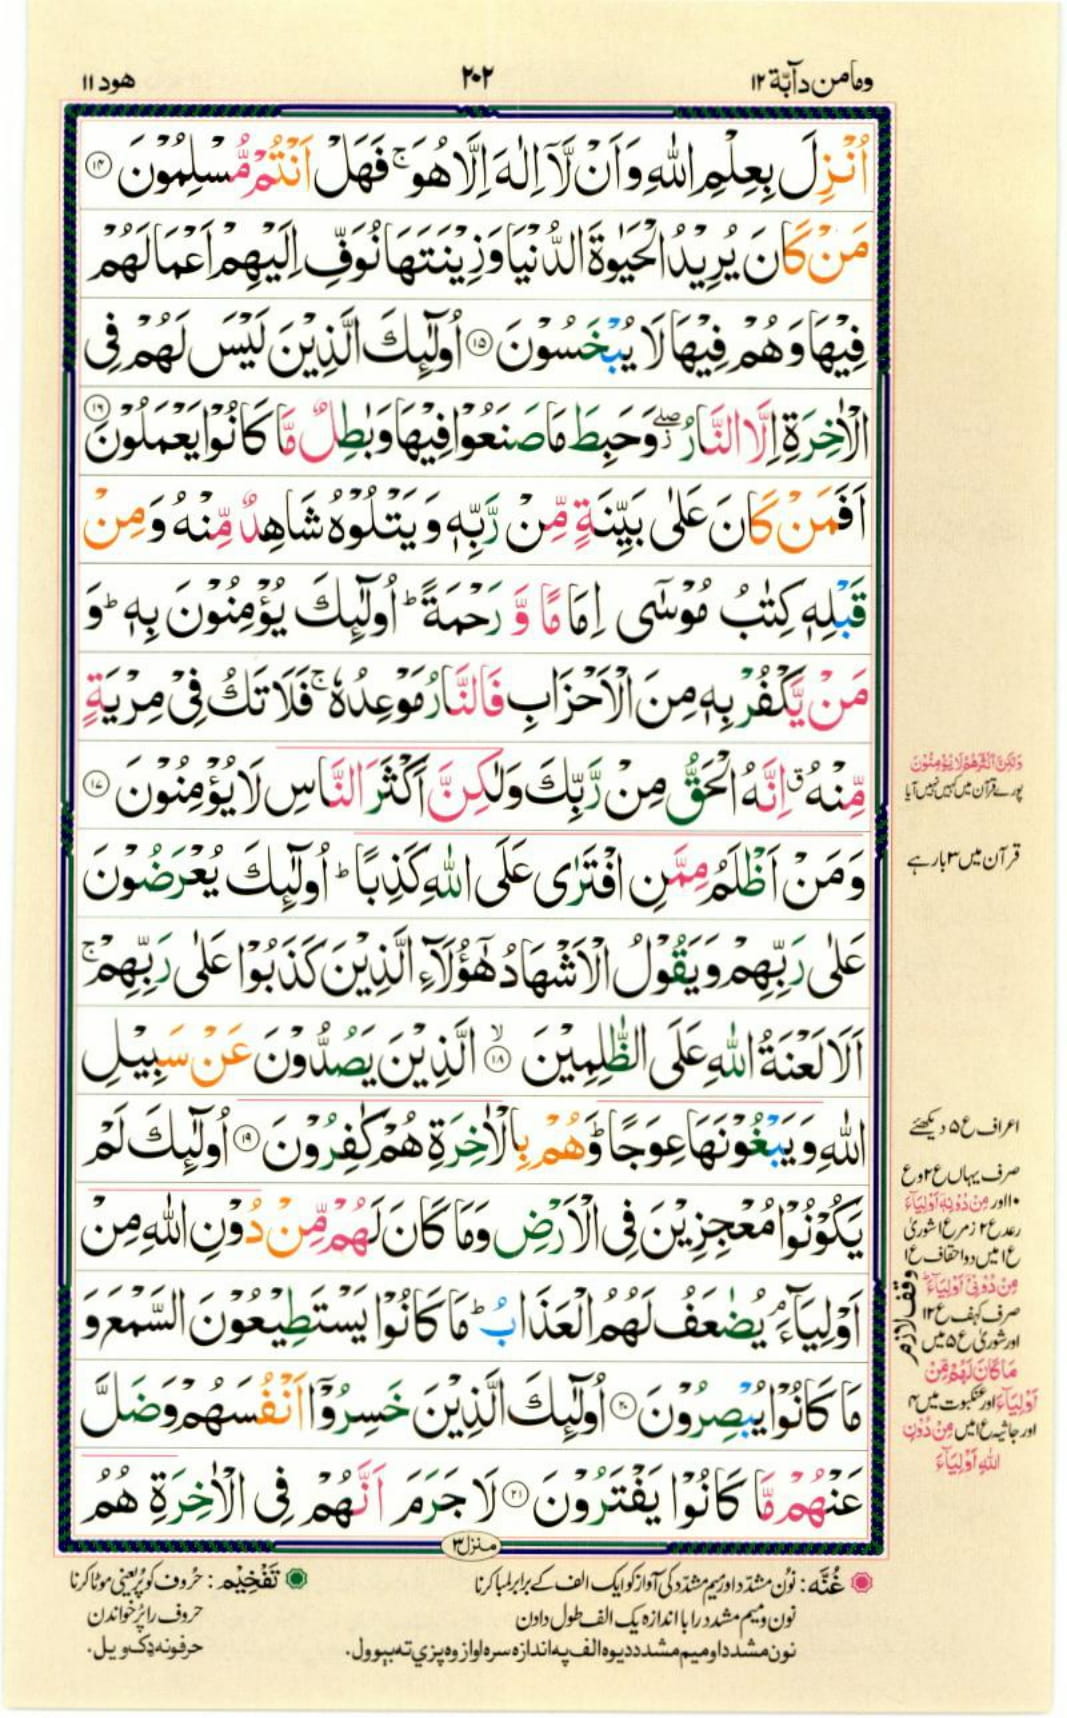 وما من دآبّة ١٢
٢٠٢
هود ١١
اُنْزِلَ بِعِلْمِ اللّٰهِ وَاَنْ لَّاۤ اِلٰهَ اِلَّا هُوَ ۚ فَهَلْ اَنْتُمْ مُّسْلِمُوْنَ ⑭
مَنْ كَانَ يُرِيْدُ الْحَيٰوةَ الدُّنْيَا وَزِيْنَتَهَا نُوَفِّ اِلَيْهِمْ اَعْمَالَهُمْ
فِيْهَا وَهُمْ فِيْهَا لَا يُبْخَسُوْنَ ⑮ اُولٰٓئِكَ الَّذِيْنَ لَيْسَ لَهُمْ فِى
الْاٰخِرَةِ اِلَّا النَّارُ ۖ وَحَبِطَ مَا صَنَعُوْا فِيْهَا وَبٰطِلٌ مَّا كَانُوْا يَعْمَلُوْنَ ⑯
اَفَمَنْ كَانَ عَلٰى بَيِّنَةٍ مِّنْ رَّبِّهٖ وَيَتْلُوْهُ شَاهِدٌ مِّنْهُ وَمِنْ
قَبْلِهٖ كِتٰبُ مُوْسٰٓى اِمَامًا وَّ رَحْمَةً ؕ اُولٰٓئِكَ يُؤْمِنُوْنَ بِهٖ ؕ وَ
مَنْ يَّكْفُرْ بِهٖ مِنَ الْاَحْزَابِ فَالنَّارُ مَوْعِدُهٗ ۚ فَلَا تَكُ فِىْ مِرْيَةٍ
مِّنْهُ ۗ اِنَّهُ الْحَقُّ مِنْ رَّبِّكَ وَلٰكِنَّ اَكْثَرَ النَّاسِ لَا يُؤْمِنُوْنَ ⑰
وَمَنْ اَظْلَمُ مِمَّنِ افْتَرٰى عَلَى اللّٰهِ كَذِبًا ؕ اُولٰٓئِكَ يُعْرَضُوْنَ
عَلٰى رَبِّهِمْ وَيَقُوْلُ الْاَشْهَادُ هٰٓؤُلَاۤءِ الَّذِيْنَ كَذَبُوْا عَلٰى رَبِّهِمْ ۚ
اَلَا لَعْنَةُ اللّٰهِ عَلَى الظّٰلِمِيْنَ ۙ⑱ الَّذِيْنَ يَصُدُّوْنَ عَنْ سَبِيْلِ
اللّٰهِ وَيَبْغُوْنَهَا عِوَجًا ؕ وَهُمْ بِالْاٰخِرَةِ هُمْ كٰفِرُوْنَ ⑲ اُولٰٓئِكَ لَمْ
يَكُوْنُوْا مُعْجِزِيْنَ فِى الْاَرْضِ وَمَا كَانَ لَهُمْ مِّنْ دُوْنِ اللّٰهِ مِنْ
اَوْلِيَاۤءَ ۘ يُضٰعَفُ لَهُمُ الْعَذَابُ ؕ مَا كَانُوْا يَسْتَطِيْعُوْنَ السَّمْعَ وَ
مَا كَانُوْا يُبْصِرُوْنَ ⑳ اُولٰٓئِكَ الَّذِيْنَ خَسِرُوْۤا اَنْفُسَهُمْ وَضَلَّ
عَنْهُمْ مَّا كَانُوْا يَفْتَرُوْنَ ㉑ لَا جَرَمَ اَنَّهُمْ فِى الْاٰخِرَةِ هُمُ
وَلٰكِنَّ اَكْثَرَهُمْ لَا يُؤْمِنُوْنَ
پورے قرآن میں کہیں نہیں آیا
قرآن میں ۳ بار ہے
اعراف ع۵ دیکھئے
صرف یہاں ع۲ و ع
۱۰ اور مِنْ دُوْنِهٖ اَوْلِيَآءَ
رعد ع۲ زمر ع۱ شوریٰ
ع۱ میں دو احقاف ع۴
مِنْ دُوْنِىْ اَوْلِيَآءَ
صرف کہف ع۱۲
اور شوریٰ ع۵ میں
مَا كَانَ لَهُمْ مِّنْ
اَوْلِيَآءَ اور عنکبوت میں ۴
اور جاثیہ ع۱ میں مِنْ دُوْنِ
اللّٰهِ اَوْلِيَآءَ
وقف لازم
منزل ٣
غُنَّه : نون مشدّد اور میم مشدّد کی آواز کو ایک الف کے برابر لمبا کرنا
نون و میم مشدد را با اندازہ یک الف طول دادن
نون مشدد او میم مشدد دیوہ الف په اندازه سره اواز وه پزي ته بېوول.
تَفْخِيْم : حُروف کو پُر یعنی موٹا کرنا
حروف را پُر خواندن
حرفونه ډک ویل.